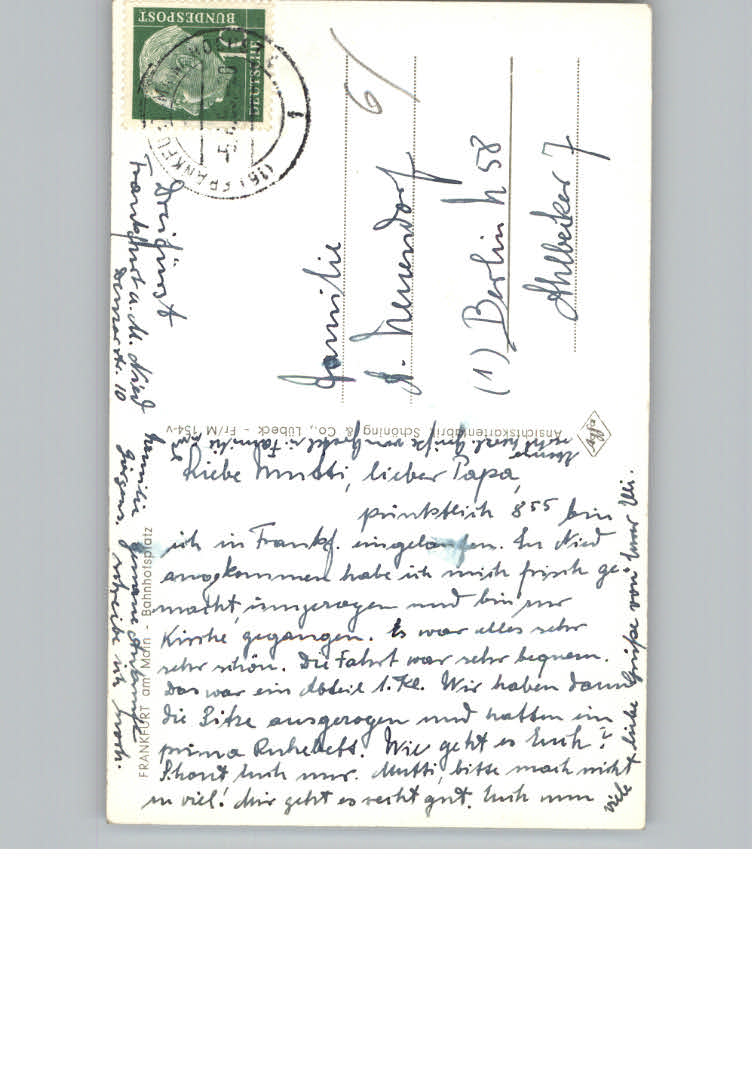 Liebe Mutti, lieber Papa,
pünktlich 8 55 bin
ich in Frankf. eingelaufen. In Nied
angekommen habe ich mich frisch ge-
macht, umgezogen und bin zur
Kirche gegangen. Es war alles sehr
sehr schön. Die Fahrt war sehr bequem.
Das war ein Abteil 1. Kl. Wir haben dann
die Sitze ausgezogen und hatten ein
prima Ruhebett. Wie geht es Euch?
Schont Euch nur. Mutti, bitte mach nicht
zu viel! Mir geht es recht gut. Euch nun
viele liebe Grüße von Eurer
recht herzl. Grüße von Familie
Frankfurt a. M. Nied
10
Familie genaue
schreibe ich noch.
Familie
(1) Berlin N 58
Ahlbecker 7
6/
DEUTSCHE
BUNDESPOST
10
(16) FRANKFURT
1
Ansichtskartenfabrik Schöning & Co., Lübeck - Fr/M 154-v
FRANKFURT am Main - Bahnhofsplatz